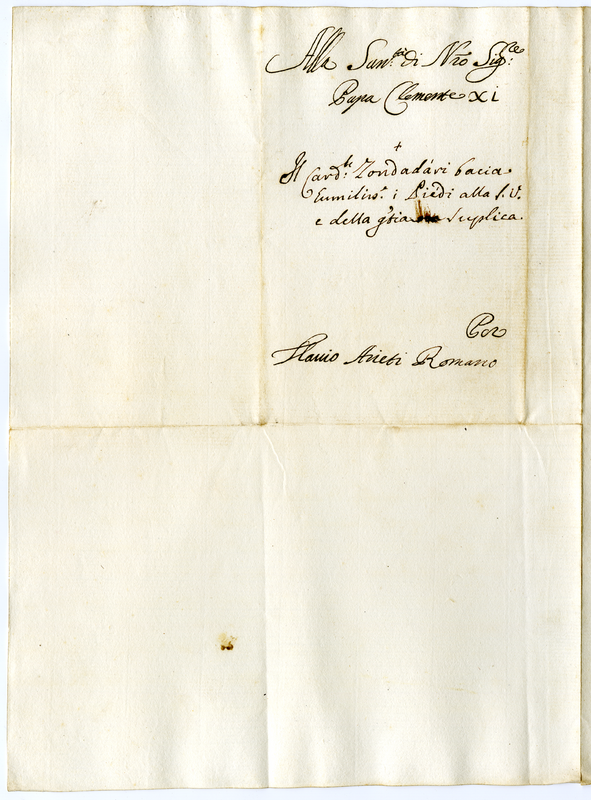 Alla San.tà di N̄ro Sig.re
Papa Clemente XI
+
Il Card.le Zondadari bacia
humiliss.e i Piedi alla S. V.
e della gr̄tia suplica
Per
Flavio Arieti Romano